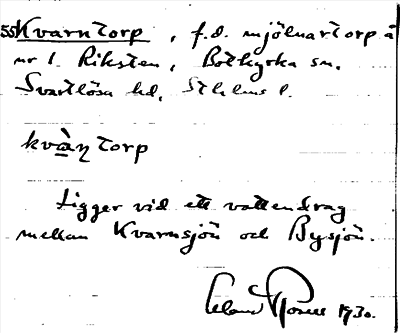 55 Kvarntorp, f.d. mjölnartorp å
nr 1. Riksten, Botkyrka sn.
Svartlösa hd, Sthlms l.
kvàn̩torp
Ligger vid ett vattendrag
mellan Kvarnsjön och Bysjön.
1930.